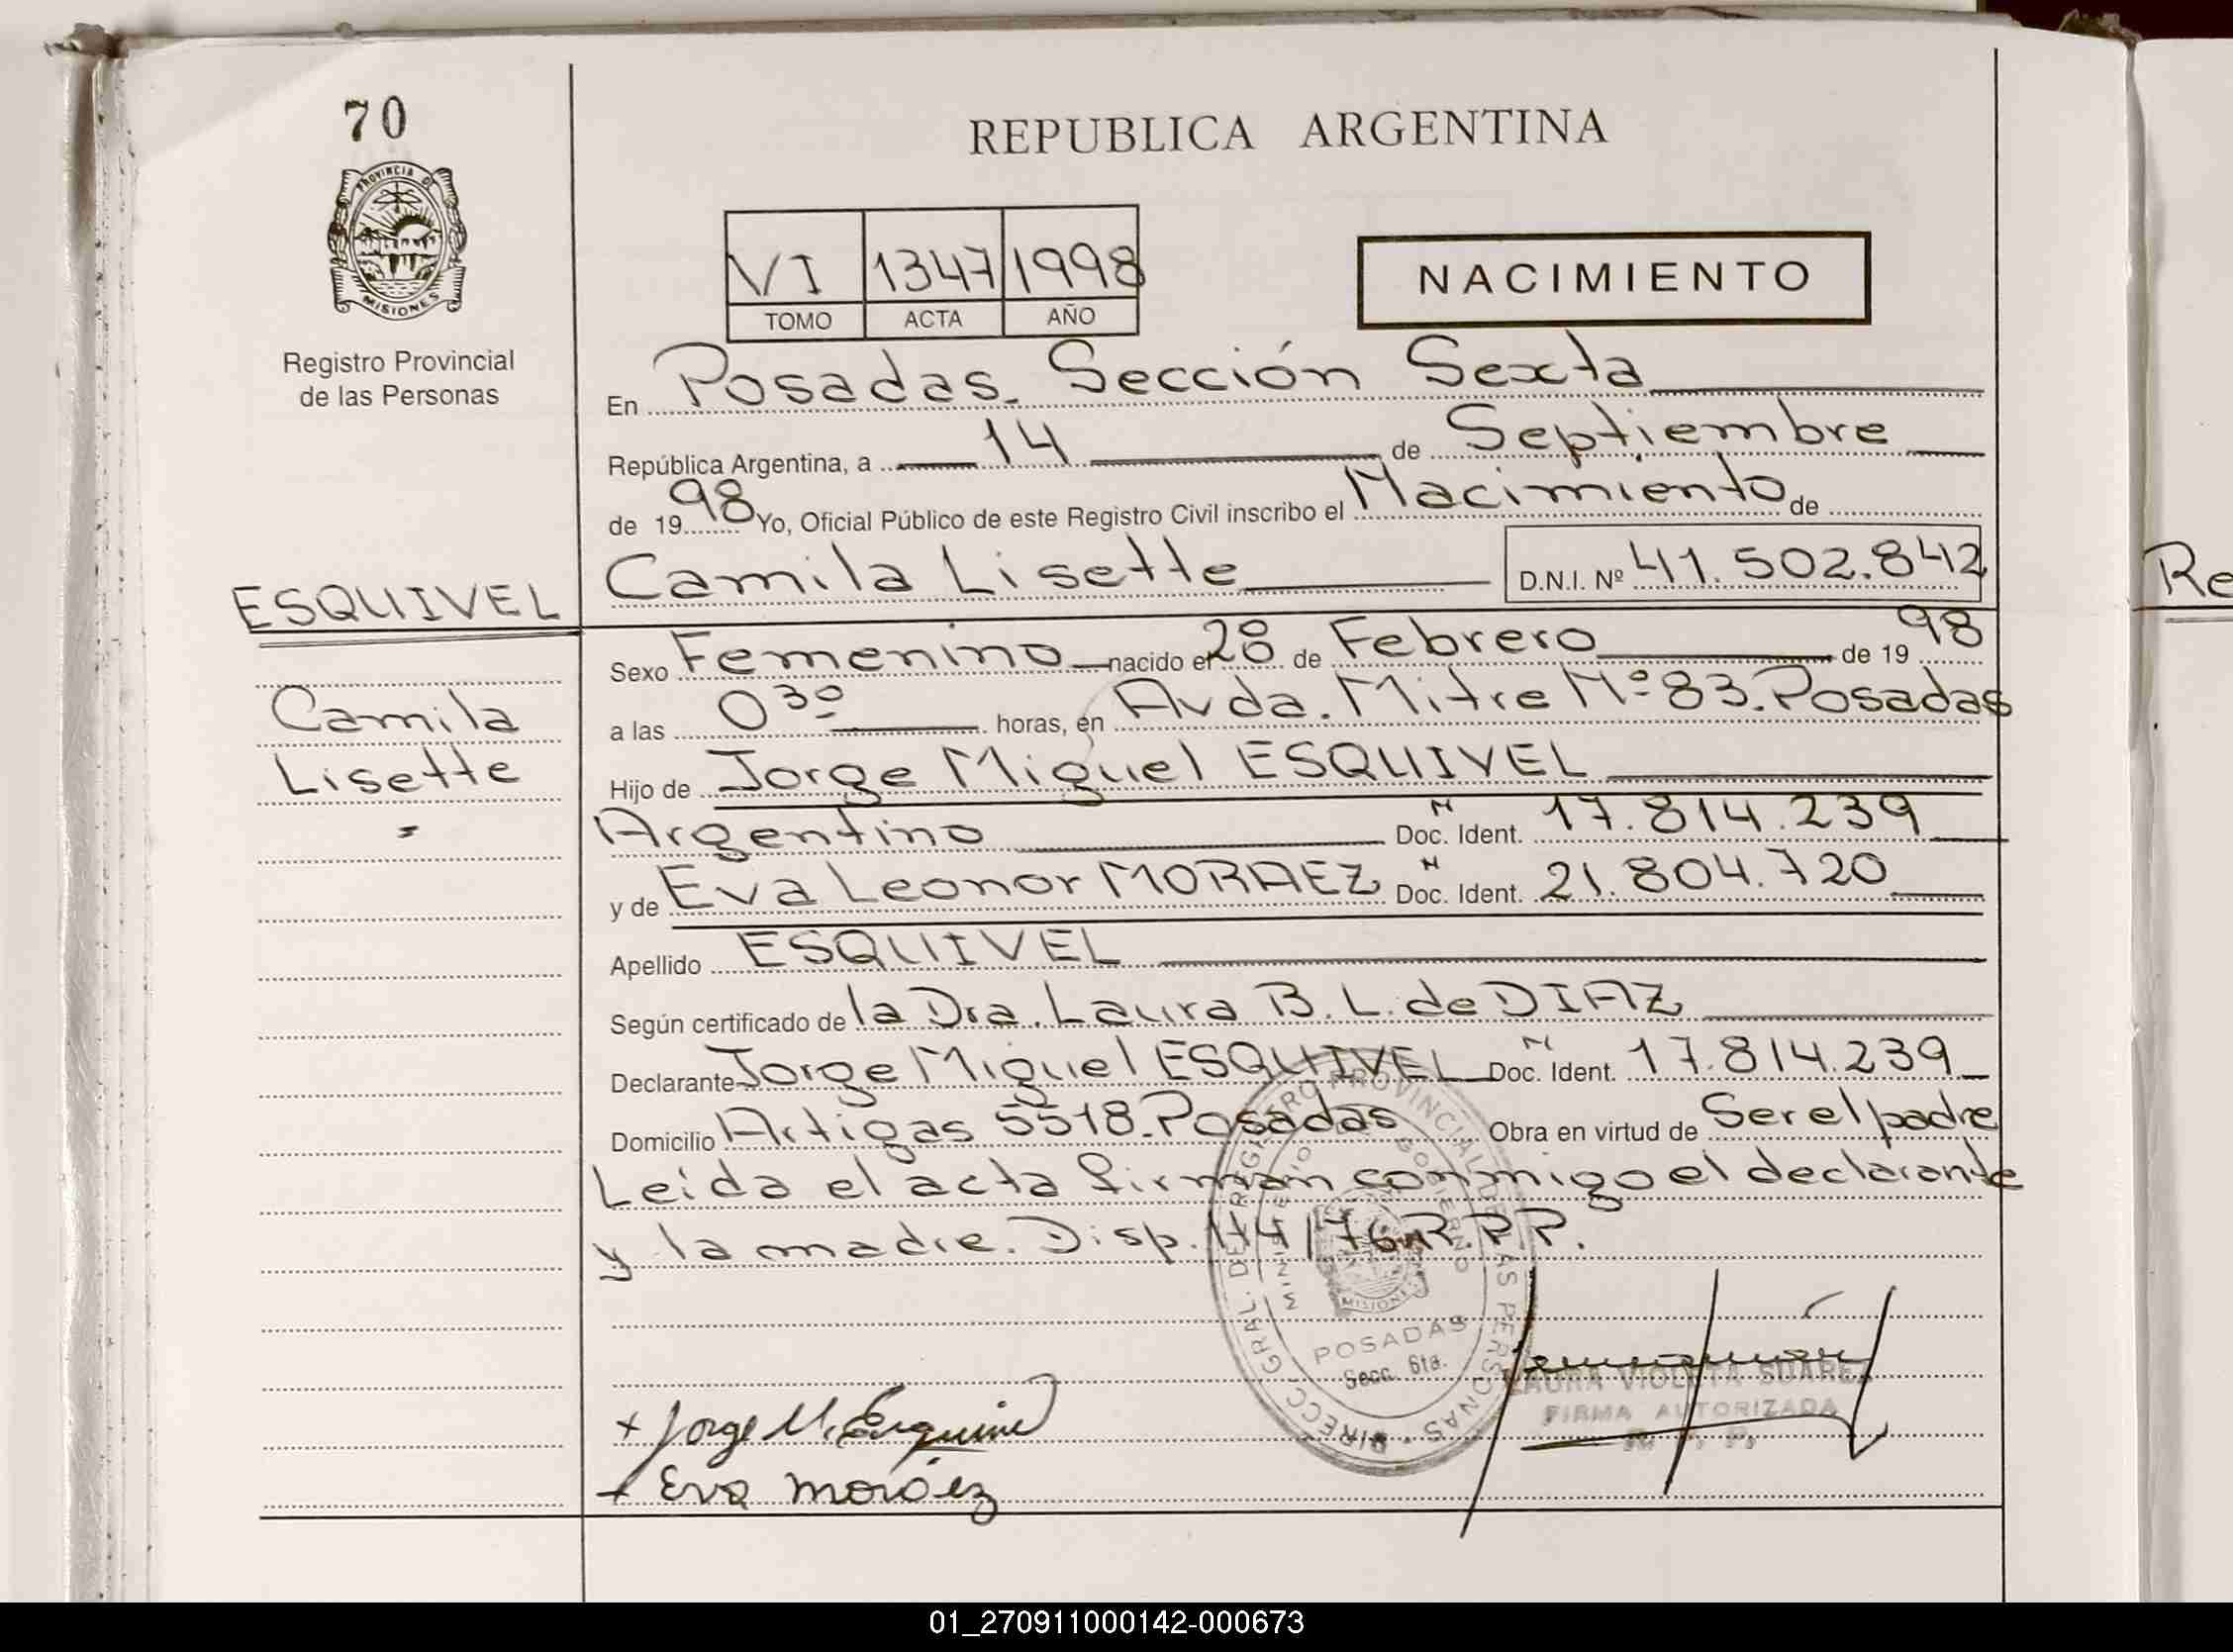 70
REPUBLICA ARGENTINA
PROVINCIA DE
MISIONES
Registro Provincial
de las Personas
VI 1347 1998
TOMO ACTA AÑO
NACIMIENTO
En Posadas. Sección Sexta
República Argentina, a 14 de Septiembre
de 1998 Yo, Oficial Público de este Registro Civil inscribo el Nacimiento de
Camila Lisette D.N.I. Nº 41.502.842
ESQUIVEL
Camila
Lisette
Sexo Femenino nacido el 28 de Febrero de 1998
a las 03º horas, en Avda. Mitre Nº 83. Posadas
Hijo de Jorge Miguel ESQUIVEL
Argentino Doc. Ident. N 17.814.239
y de Eva Leonor MORAEZ Doc. Ident. N 21.804.720
Apellido ESQUIVEL
Según certificado de la Dra. Laura B. L. de DIAZ
Declarante Jorge Miguel ESQUIVEL Doc. Ident. N 17.814.239
Domicilio Artigas 5518. Posadas Obra en virtud de Ser el padre
Leída el acta firman conmigo el declarante
y la madre. Disp. 114/76 R.P.P.
DIRECC. GRAL. DEL REGISTRO PROVINCIAL DE LAS PERSONAS
MINISTERIO DE GOBIERNO
MISIONES
POSADAS
Secc. 6ta.
LAURA VIOLETA SUAREZ
FIRMA AUTORIZADA
R. P. P.
+ Jorge M. Esquivel
+ Eva moráez
Re
01_270911000142-000673